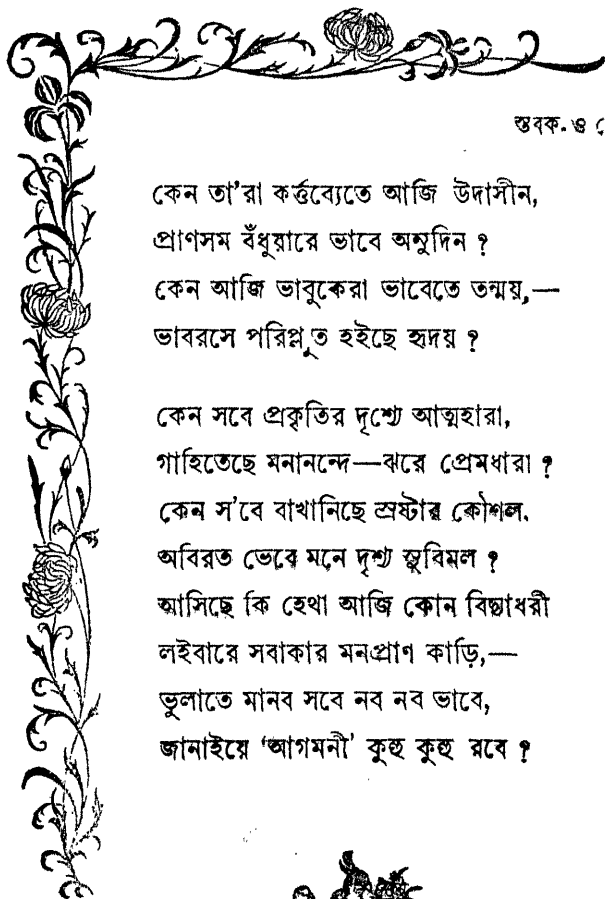 স্তবক.ও
কেন তা'রা কর্ত্তব্যেতে আজি উদাসীন,
প্রাণসম বঁধুয়ারে ভাবে অনুদিন ?
কেন আজি ভাবুকেরা ভাবেতে তন্ময়,—
ভাবরসে পরিপ্লুত হইছে হৃদয় ?
কেন সবে প্রকৃতির দৃশ্যে আত্মহারা,
গাহিতেছে মনানন্দে—ঝরে প্রেমধারা ?
কেন স'বে বাখানিছে স্রষ্টার কৌশল.
অবিরত ভেবে মনে দৃশ্য সুবিমল ?
আসিছে কি হেথা আজি কোন বিদ্যাধরী
লইবারে সবাকার মনপ্রাণ কাড়ি,—
ভুলাতে মানব সবে নব নব ভাবে,
জানাইয়ে ‘আগমনী’ কুহু কুহু রবে ?